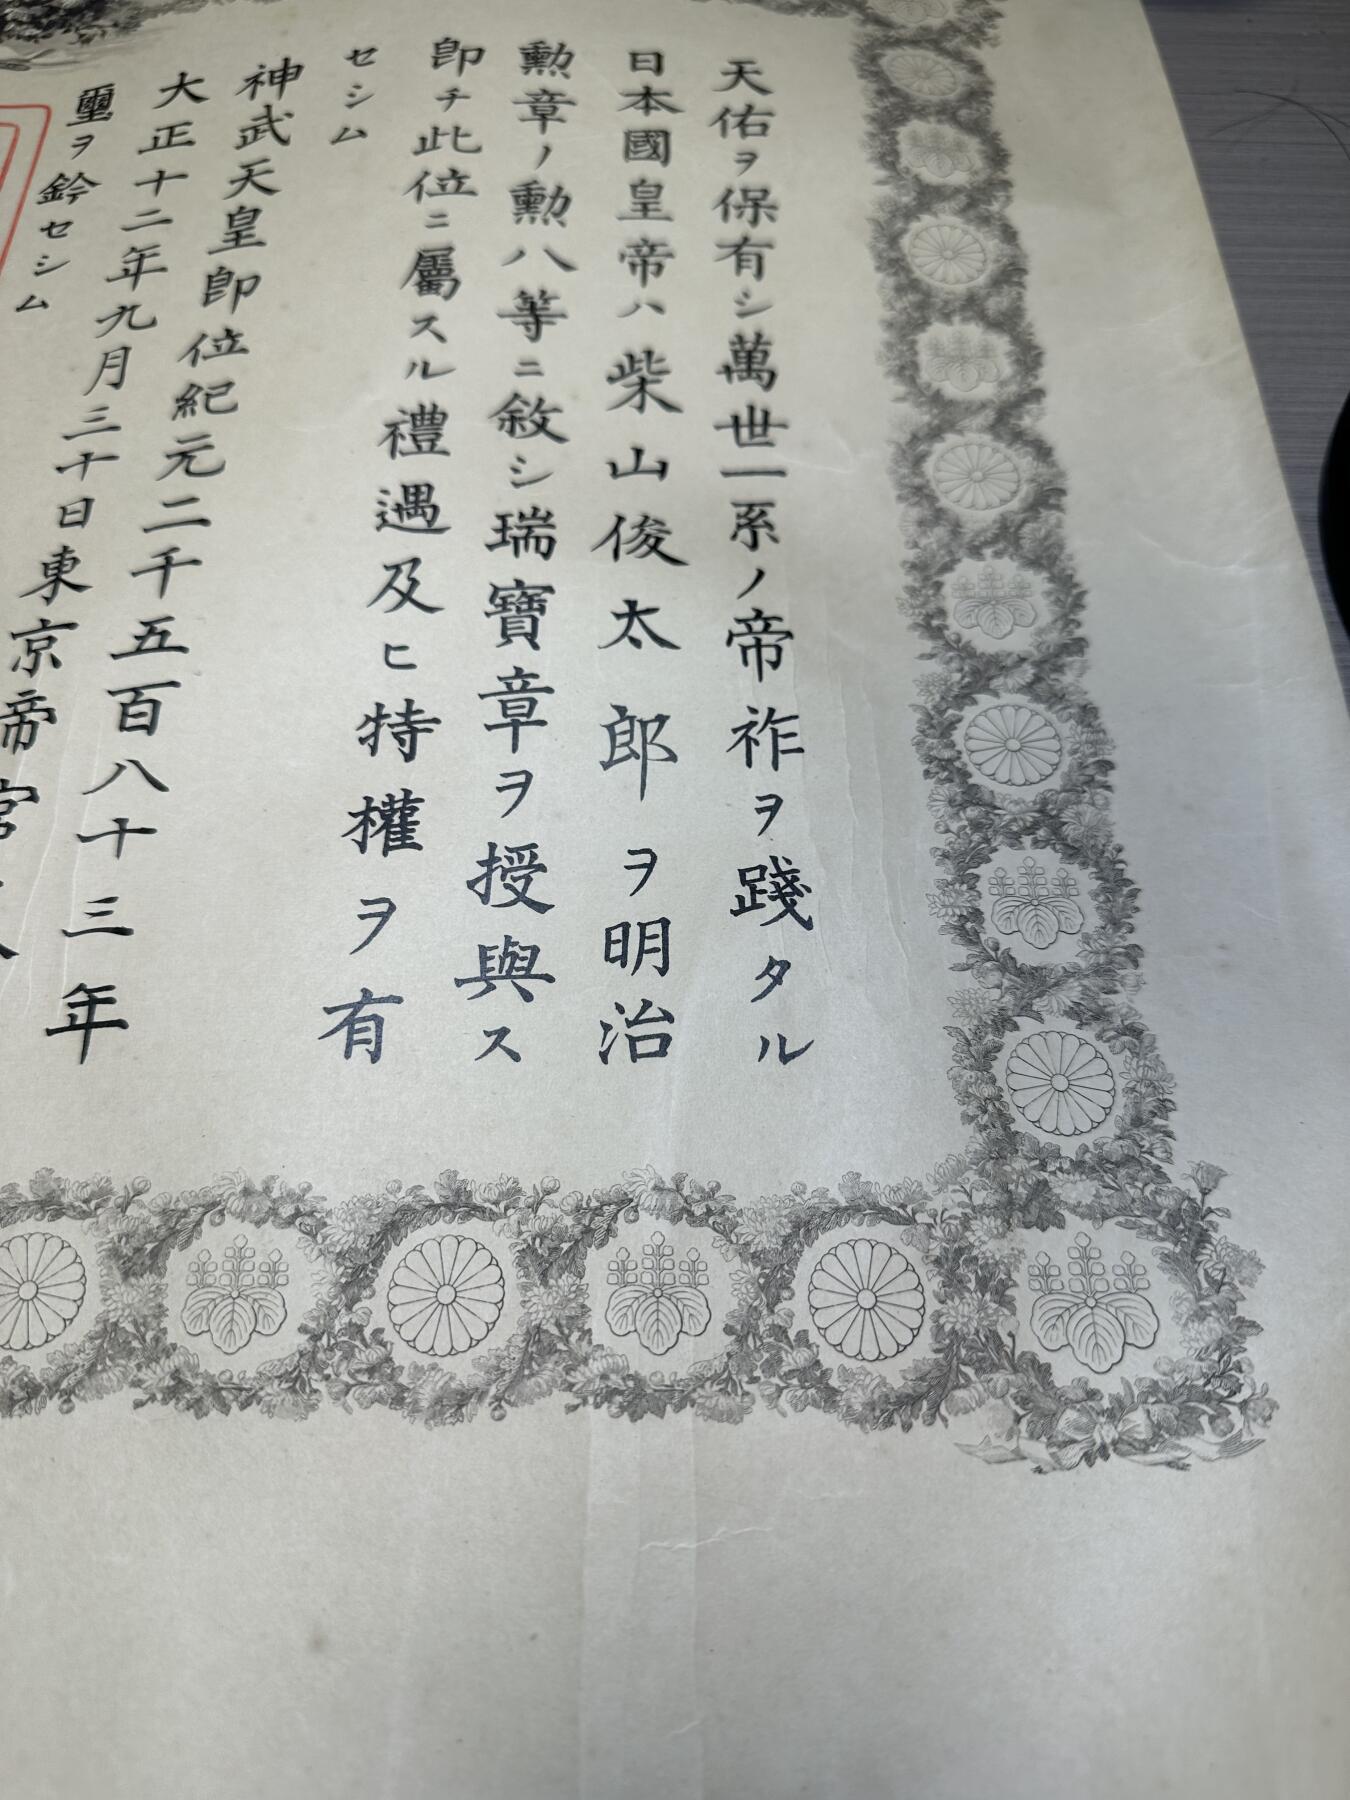 天佑ヲ保有シ萬世一系ノ帝祚ヲ踐タル
日本國皇帝ハ柴山俊太郎ヲ明治
勲章ノ勲八等ニ敘シ瑞寶章ヲ授與ス
即チ此位ニ屬スル禮遇及ヒ特權ヲ有
セシム
神武天皇即位紀元二千五百八十三年
大正十二年九月三十日東京帝宮
璽ヲ鈐セシム